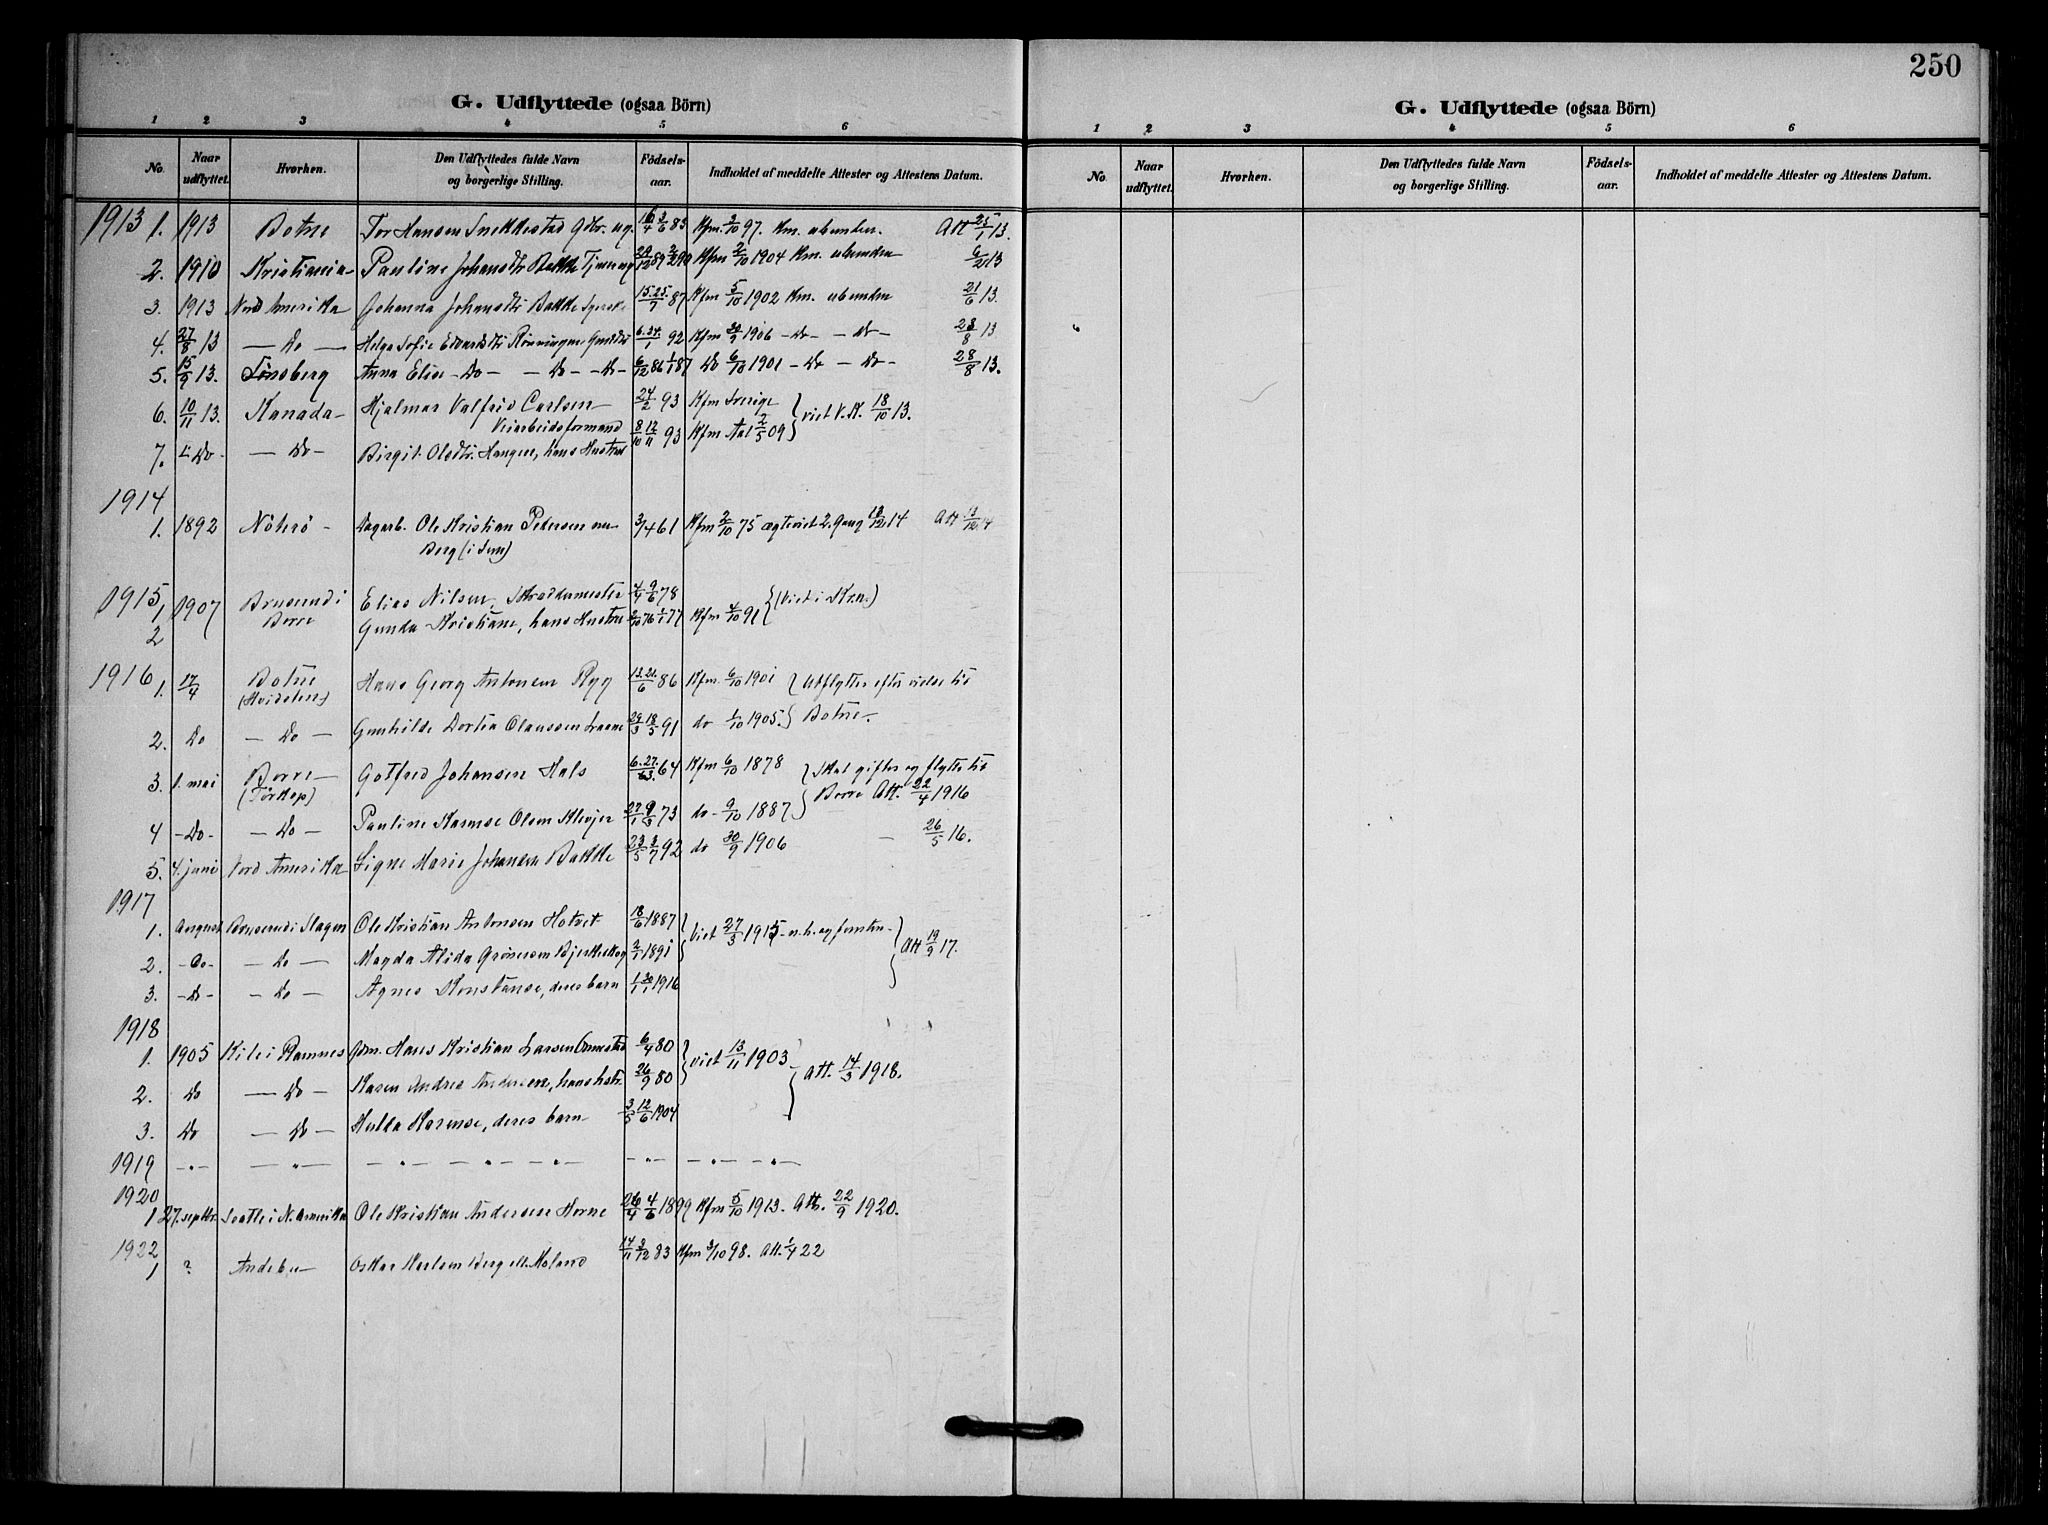 250
G. Udflyttede (ogsaa Börn)
1 2 3 4 5 6
No. Naar udflyttet. Hvorhen. Den Udflyttedes fulde Navn og borgerlige Stilling. Födsels-aar. Indholdet af meddelte Attester og Attestens Datum.
1913 1. 1913 Botne Tor Hansen Snekkestad Kfm. 3/10 97. Km. ubunden. Att 25/1 13.
2. 1910 Kristiania Pauline Johansdtr Bakke Kfm 2/10 1904 Km. ubunden 6/2 13
3. 1913 Nord Amerika Johanna Johansdtr Bakke 15.25./7 87 Kfm 5/10 1902 Km. ubunden 21/6 13.
4. 27/8 13 — Do — Helga Sofie Edvardsdtr Rönningen 92 Kfm 30/9 1906 – Do – – Do – 23/8 13
5. 15/9 13. Tönsberg Anna Elise – Do – – Do – – Do – 6/12 86 1/1 87 Do 6/10 1901 – Do – Do – 28/8 13.
6. 10/11 13. Kanada – Hjalmar Valfrid Carlsen – 24/2 93 Kfm Sverige } viet V.K. 18/10 13.
Veiarbeidsformand
7. – Do – — Do – Birgit Olsdtr. Haugen, hans Hustru 8/10 12/11 93 Kfm Aal 2/5 09
1914
1. 1892 Nöterö – Dagarb. Ole Kristian Petersen 3/4 61 Kfm 3/10 75 ægteviet 2. Gang 13/12 14 Att 13/12 14
Berg (i Sem)
1915 1 1907 Brusrud i Elias Nilsen, Skræddermester 4/4 9/6 78 { (Viet i Kr.a.)
Borre
2 Gunda Kristiane, hans Hustru 76 1/1 77 Kfm 4/10 91
1916 1. 17/4 Botne Hans Georg Antonsen Ryg 13.21./6 86 Kfm. 6/10 1901 } Udflytter efter vielse til
(Hvidsten)
2. Do — Do — Gunhilde Dortea Olaussen 29/3 18/5 91 do 1/10 1905. } Botne.
3. 1. mai Borre – Gotfred Johansen Hals 6.27./3 64 Kfm 6/10 1878 } Skal giftes og flytte til
(Törkop)
4 – Do – — Do – Pauline Karense Olsen Klevjer 27/1 9/3 73 do – 9/10 1887 } Borre Att. 22/4 1916
5. 4. juni Nord Amerika Signe Marie Johansen Bakke 23/5 3/7 92 do 30/9 1906 – 26/5 16.
1917
1. August Brusrud i Slagen Ole Kristian Antonsen 18/6 1887 } Viet 27/3 1915
2. – Do – — Do — Magda Alida Grönesen Bjerkeskog 2/1 1891 } Att 19/9 17.
3. – Do – – Do – Agnes Konstanse, deres barn 1/1 30/1 1916
1918
1. 1905 Kile i Ramnes Gdm. Hans Kristian Larsen 6/4 80 } viet 13/11 1903
2. Do — Do – Karen Andrea Andersen, hans hstr. 26/9 80 } Att. 14/3 1918.
3. Do — Do – Hulda Karense, deres barn 3/5 12/6 1904
1919 – „ – — „ — – „ – – „ – – „ – – „ – – „ – – „ –
1920
1 27. septbr. Seatle i N. Amerika Ole Kristian Andersen Horne 26/4 4/6 1899 Kfm 5/10 1913. Att. 22/9 1920.
1922
1 ? Andebu Oskar Karlsen Berg ell. Moland 14/11 3/12 83 Kfm 3/10 98. Att. 1/4 22
G. Udflyttede (ogsaa Börn)
1 2 3 4 5 6
No. Naar udflyttet. Hvorhen. Den Udflyttedes fulde Navn og borgerlige Stilling. Födsels-aar. Indholdet af meddelte Attester og Attestens Datum.